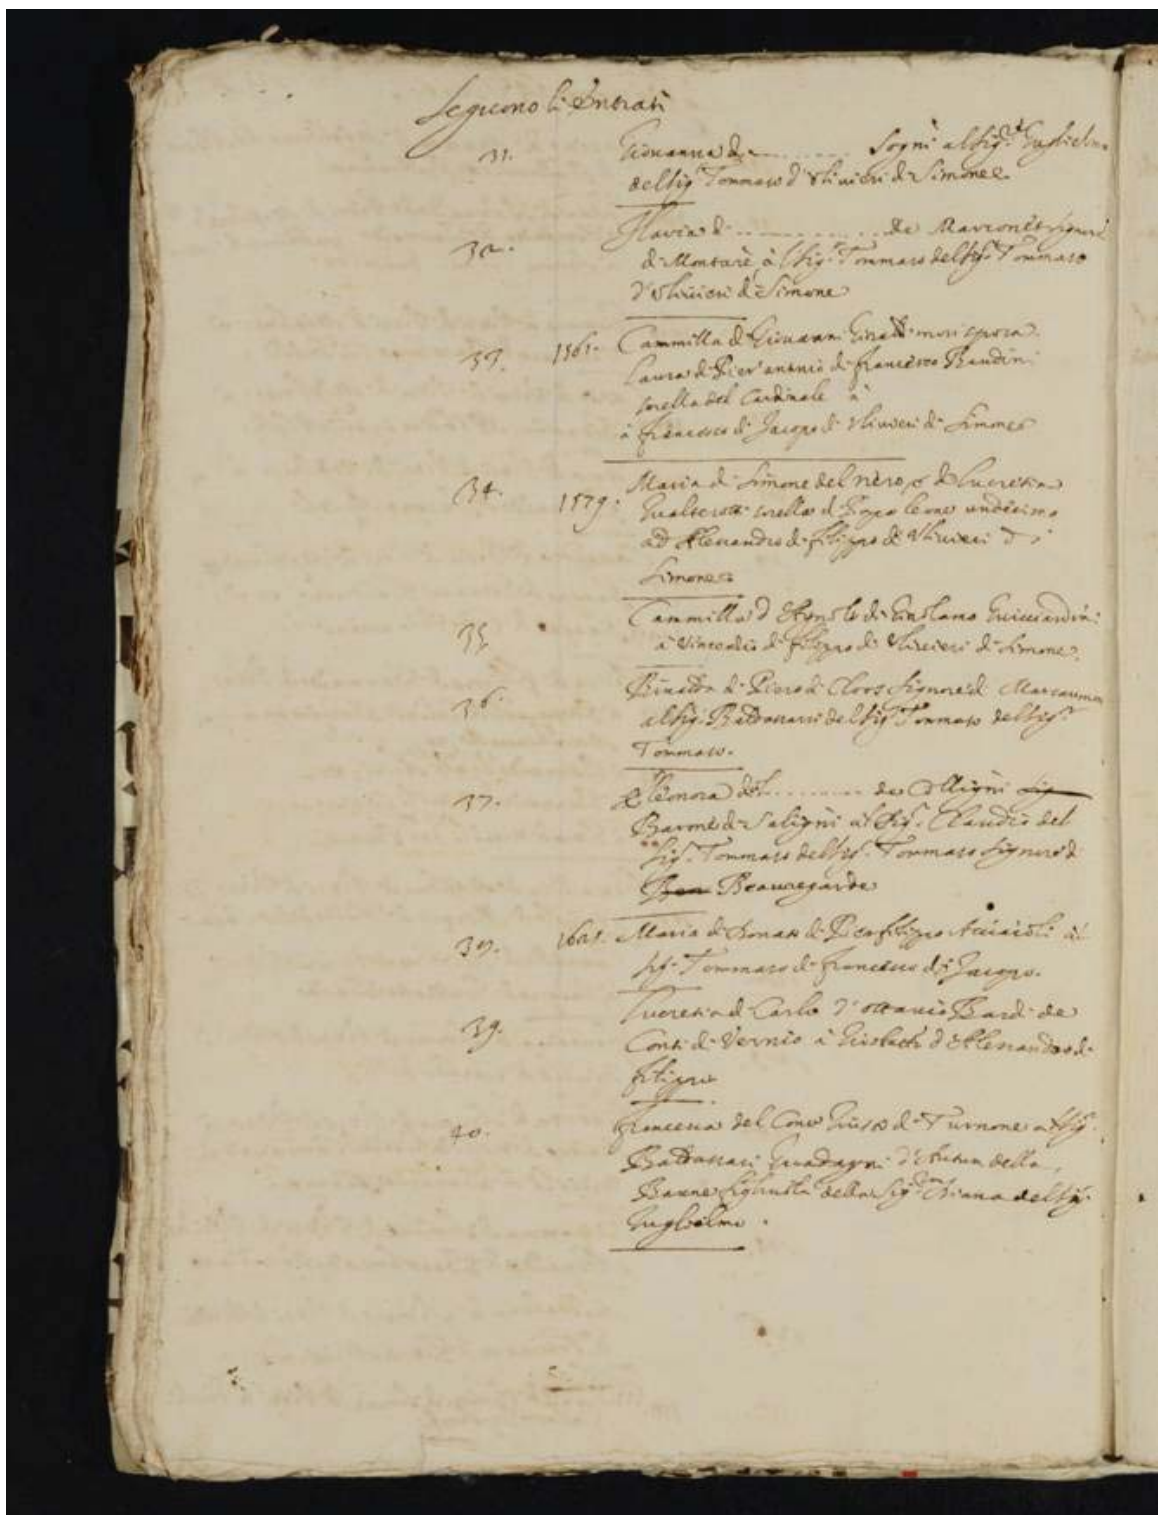 Seguono li Entrati
31. Giovanna di ........... Sogni al Sig.re Guglielmo
del Sig.r Tommaso d'Ulivieri di Simone.
32. Flavia di .............. de Marconè Signore
di Montarè, à l Sig.r Tommaso del Sig.r Tommaso
d'Ulivieri di Simone
33. 1561. Cammilla di Giovanni mori sposa
Laura di Pier'antonio di Francesco Bandini
sorella del Cardinale à
à francesco di Jacopo di Ulivieri di Simone
34. 1579. Maria di Simone del nero, e di Lucretia
Gualterotti sorella di Papa leone undecimo
ad Alessandro di filippo di Ulivieri di
Simone
35. Cammilla d'Agnolo di Girolamo Guicciardini
à Vincentio di filippo di Ulivieri di Simone.
36. di Piero di Signore di
al Sig.r Baldassarri del Sig.r Tommaso del Sig.r
Tommaso.
37. Eleonora del .......... de Sig
Barone di Saligni al Sig.r Claudio del
Sig.r Tommaso del Sig.r Tommaso Signore di
Beau Beauregarde
38. Maria di Donato di Pierfilippo Acciaioli al
Sig.r Tommaso di francesco di Jacopo.
39. Lucretia di Carlo d'ottavio Bardi de
Conti di Vernio à d'Alessandro di
filippo
40. francesca del Conte di Turnone al Sig.r
Baldassari Guadagni d'Autun della
Baune della Sig.ra Diana del Sig.r
Guglielmo.